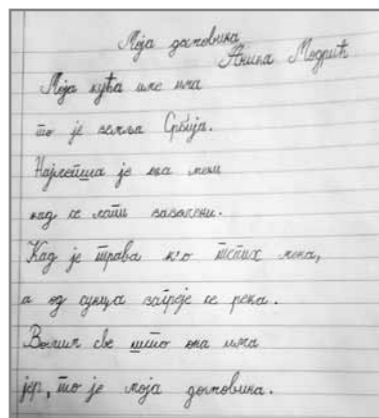 Моја домовина
Аника Модрић
Моја кућа име има
то је земља Србија.
Најлепша је она мени
кад се лети зазелени.
Кад је трава к'о тепих мека,
а од сунца загреје се река.
Волим све што она има
јер, то је моја домовина.